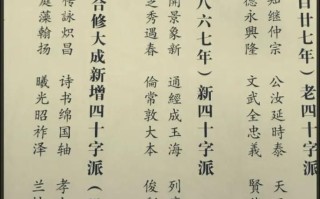 百廿七年）老四十字派
知继仲宗 公汝延時泰 天
德永興隆 文武全忠義 賢
八六七年）新四十字派
開景象新 通經成玉海 列
芝秀遇春 倫常敦大本 俊
修大成新增四十字派（
詠炽昌 诗书绵国轴 孝
藻翰扬 曦光昭祚泽 兰